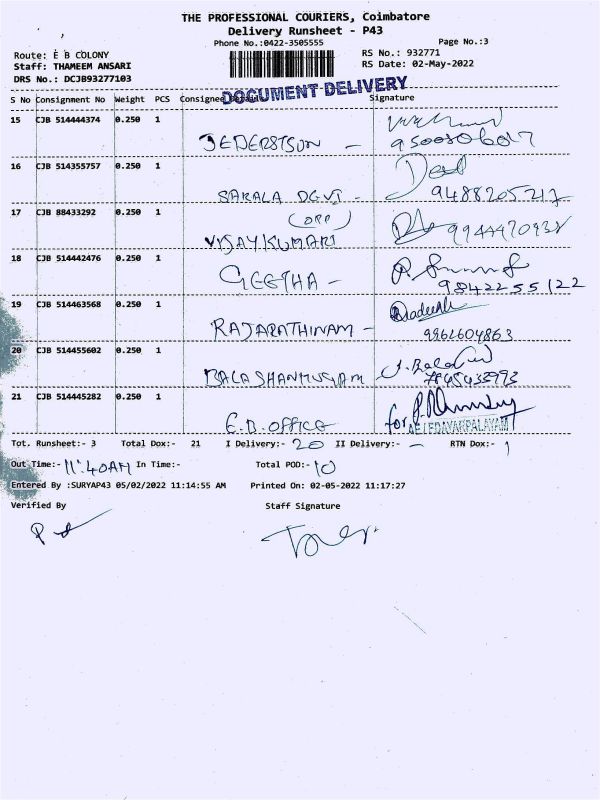 THE PROFESSIONAL COURIERS, Coimbatore
Delivery Runsheet - P43
Phone No.:0422-3505555
Page No.:3
Route: E B COLONY
RS No.: 932771
Staff: THAMEEM ANSARI
RS Date: 02-May-2022
DRS No.: DCJB93277103
DOCUMENT DELIVERY
S No Consignment No Weight PCS Consignee Signature
15 CJB 514444374 0.250 1
JEDERSTSON -
16 CJB 514355757 0.250 1
SARALA DEVI - 9488205217
17 CJB 88433292 0.250 1
(OPP)
VIJAYKUMARI 9944470938
18 CJB 514442476 0.250 1
GEETHA - 9842255122
19 CJB 514463568 0.250 1
RAJARATHINAM - 9962604863
20 CJB 514455602 0.250 1
BALASHANMUGAM 7845433993
21 CJB 514445282 0.250 1
E.B. OFFICE for
Tot. Runsheet:- 3 Total Dox:- 21 I Delivery:- 20 II Delivery:- - RTN Dox:- 1
Out Time:- 11:40AM In Time:- Total POD:- 10
Entered By :SURYAP43 05/02/2022 11:14:55 AM Printed On: 02-05-2022 11:17:27
Verified By Staff Signature